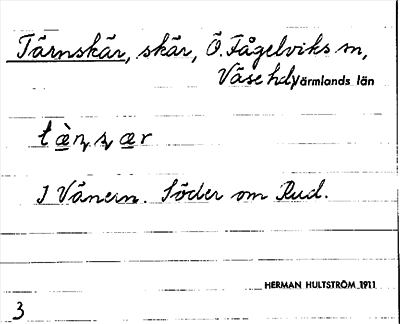 Tärnskär, skär, Ö. Fågelviks sn,
Väse hd, Värmlands län
I Vänern. Söder om Rud.
HERMAN HULTSTRÖM 1911
3